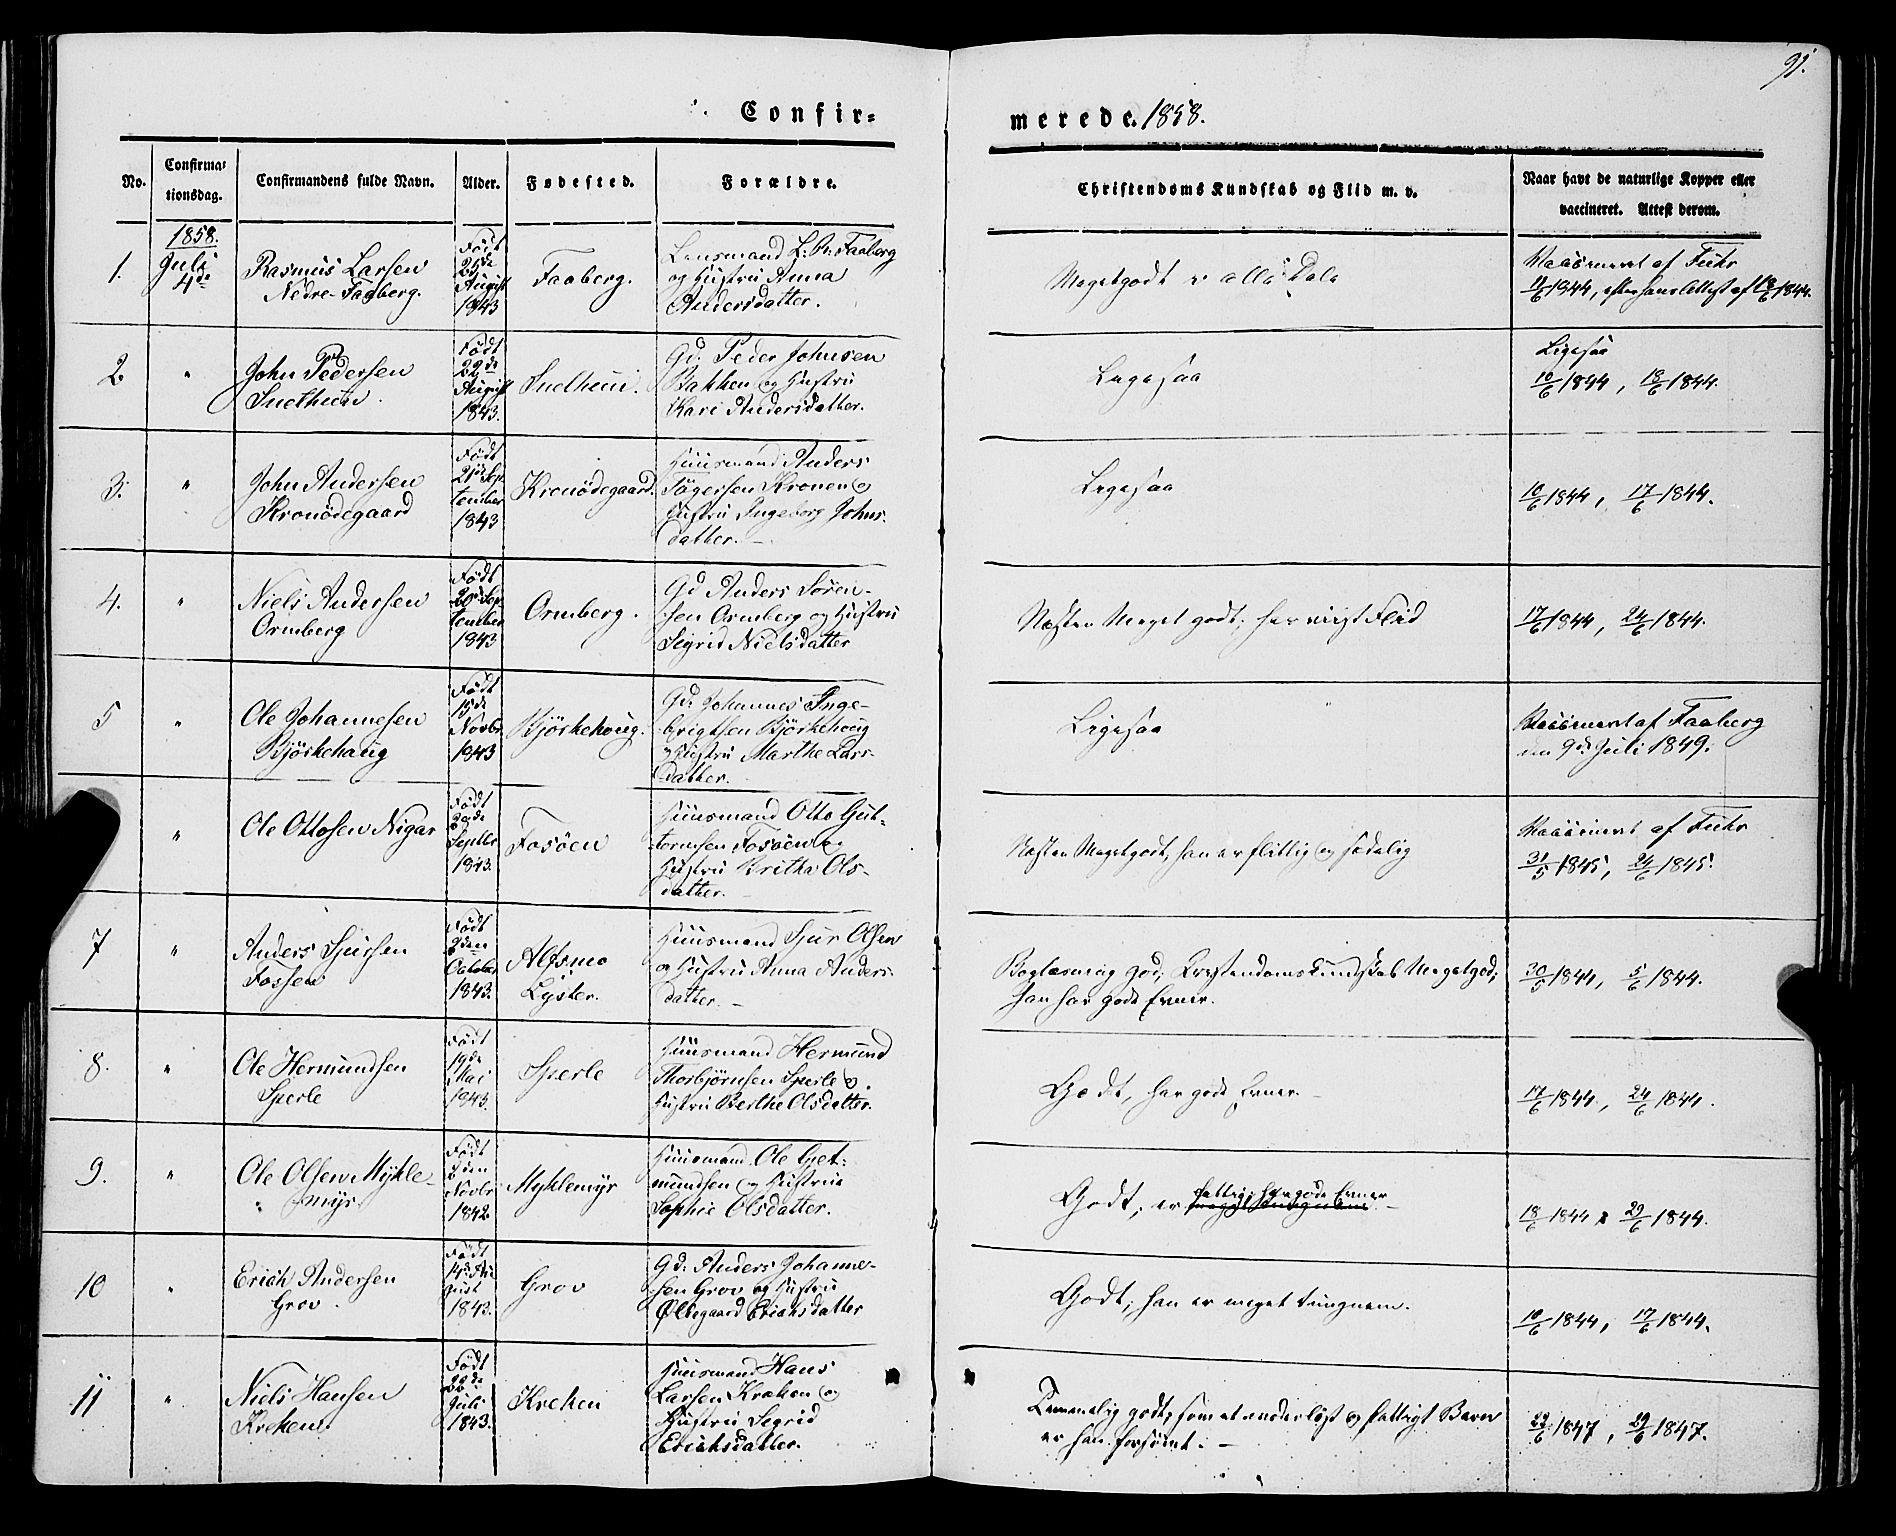 91.
Confir=
merede. 1858.
No.
Confirma=
tionsdag.
Confirmandens fulde Navn.
Alder.
Fødested.
Forældre.
Christendoms Kundskab og Flid m. v.
Naar havt de naturlige Kopper eller
vaccineret. Attest derom.
1.
1858.
Juli
4de
Rasmus Larsen
Nedre-Faaberg.
Født
August
1843
Faaberg.
Lensmand L. Faaberg
og Hustru Anna
Andersdatter.
Megetgodt i alle Dele
Vaccineret af Fuhr
11/6 1844, efter hans Attest af 18/6 1844.
2.
"
John Pedersen
Snethun.
Født
22de
August
1843.
Snethun.
Gd. Peder Johnsen
Bakken og Hustru
Kari Andersdatter.
Ligesaa
Ligesaa
10/6 1844, 18/6 1844.
3.
"
John Andersen
Kronødegaard
Født
21de Sep
tember
1843
Kronødegaard.
Huusmand Anders
Tøgersen Kronen og
Hustru Ingeborg Johns
datter. —
Ligesaa
10/6 1844, 17/6 1844.
4.
"
Niels Andersen
Ormberg
Født
20de Sep
tember
1843
Ormberg.
Gd Anders Søren-
sen Ormberg og Hustru
Sigrid Nielsdatter
Næsten Meget godt; har viist Flid
17/6 1844, 24/6 1844.
5
"
Ole Johannesen
Bjørkehaug
Født
15de
Novbr
1843
Bjørkehoug.
Gd. Johannes Inge-
brigtsen Bjørkehoug
og Hustru Marthe Lars-
datter.
Ligesaa
Vaccineret af Faaberg
den 9de Juli 1849.
"
Ole Ottosen Nigar
Født
Septbr
1843.
Fosøen
Huusmand Otto Gut-
tormsen Fosøen og
Hustru Britha Ols-
datter.
Næsten Megetgodt, han er flittig og sædelig
Vaccineret af Fuhr
31/5 1845, 24/6 1845.
7
"
Anders Sjursen
Fossen
Født
2den
October
1843.
Alfsmo
Lyster.
Huusmand Sjur Olsen
og Hustru Anna Anders
datter. —
Boglæsning god; Christendomskundskab Megetgod;
han har gode Evner.
30/5 1844, 5/6 1844.
8.
"
Ole Hermundsen
Sperle
Født
19de
Mai
1843.
Sperle
Huusmand Hermund
Thorbjørnsen Sperle og
Hustru Berthe Olsdatter.
Godt, har gode Evner. —
17/6 1844, 24/6 1844.
9.
"
Ole Olsen Myhle-
" myr
Født
2den
Novbr
1842
Myhlemyr
Huusmand Ole Get-
mundsen og Hustrue
Sophie Olsdatter.
fattig; har gode Evner
Godt, er meget tungnem. —
18/6 1844, 29/6 1844.
10
"
Erich Andersen
Grov.
Født
14de Au
gust
1843.
Grov
Gd. Anders Johanne-
sen Grov og Hustru
Oldegaard Erichsdatter
Godt; han er meget tungnem.
10/6 1844, 17/6 1844.
11
"
Niels Hansen
Kreken
Født
22de
Juli
1843.
Kreken
Huusmand Hans
Larsen Kreken og
Hustru Segrid
Erichsdatter.
Temmelig godt, som et moderløst og fattigt Barn
er han forsømt. —
22/6 1847, 29/6 1847.